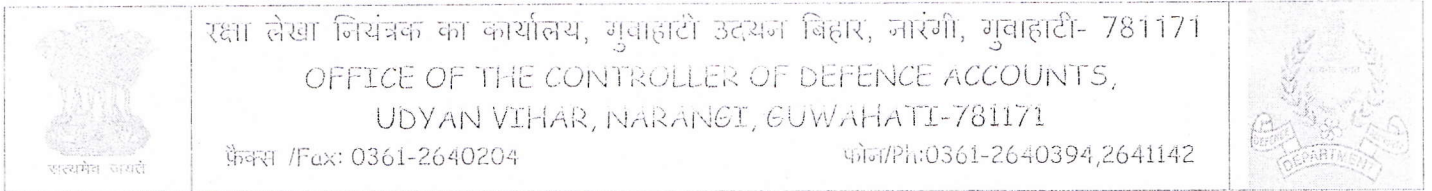 रक्षा लेखा नियंत्रक का कार्यालय, गुवाहाटी उदयन बिहार, नारंगी, गुवाहाटी- 781171
OFFICE OF THE CONTROLLER OF DEFENCE ACCOUNTS,
UDYAN VIHAR, NARANGI, GUWAHATI-781171
फ़ैक्स /Fax: 0361-2640204 फोन/Ph:0361-2640394,2641142
सत्यमेव जयते
DEFENCE
DEPARTMENT